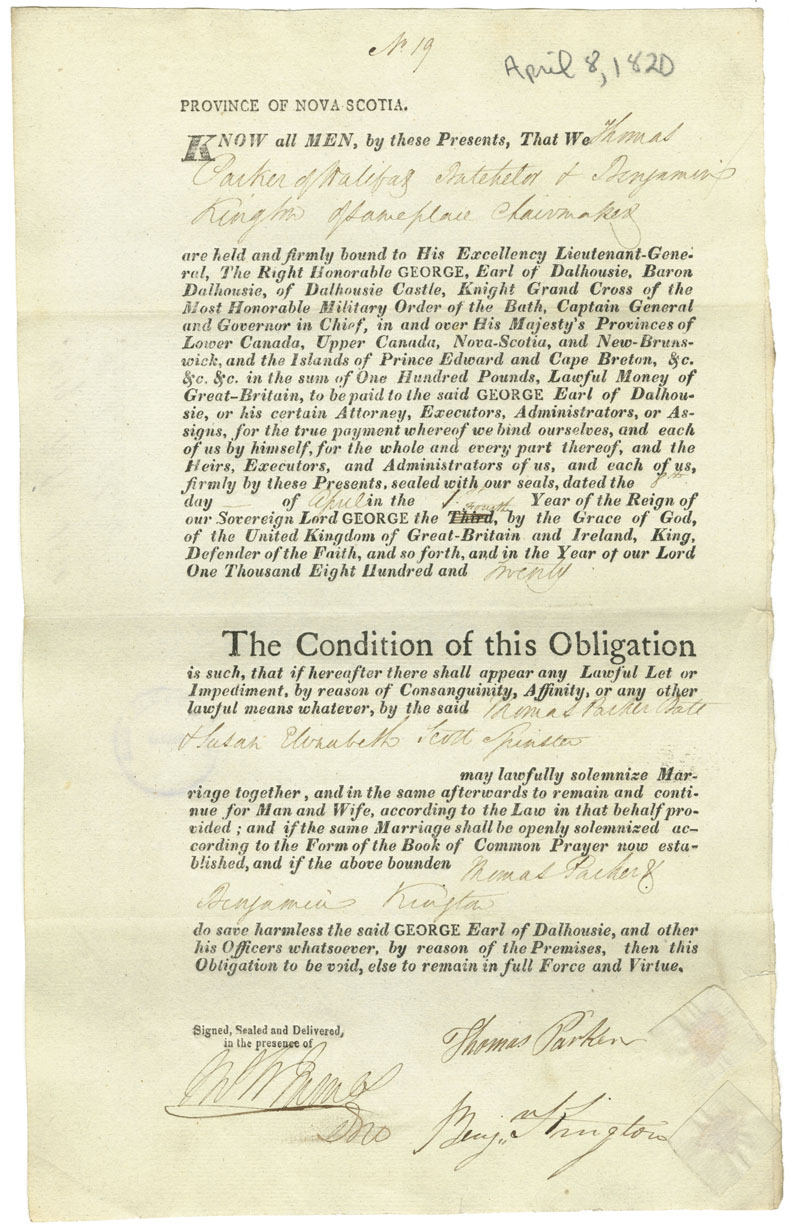 No 19
April 8, 1820
PROVINCE OF NOVA SCOTIA.
KNOW all MEN, by these Presents, That We Thomas
Parker of Halifax Batchelor & Benjamin
Kington of same place Chairmaker
are held and firmly bound to His Excellency Lieutenant-Gene-
ral, The Right Honorable GEORGE, Earl of Dalhousie, Baron
Dalhousie, of Dalhousie Castle, Knight Grand Cross of the
Most Honorable Military Order of the Bath, Captain General
and Governor in Chief, in and over His Majesty's Provinces of
Lower Canada, Upper Canada, Nova-Scotia, and New-Bruns-
wick, and the Islands of Prince Edward and Cape Breton, &c.
&c. &c. in the sum of One Hundred Pounds, Lawful Money of
Great-Britain, to be paid to the said GEORGE Earl of Dalhou-
sie, or his certain Attorney, Executors, Administrators, or As-
signs, for the true payment whereof we bind ourselves, and each
of us by himself, for the whole and every part thereof, and the
Heirs, Executors, and Administrators of us, and each of us,
firmly by these Presents, sealed with our seals, dated the 8th
day of April in the Year of the Reign of
our Sovereign Lord GEORGE the Third, fourth by the Grace of God,
of the United Kingdom of Great-Britain and Ireland, King,
Defender of the Faith, and so forth, and in the Year of our Lord
One Thousand Eight Hundred and Twenty
The Condition of this Obligation
is such, that if hereafter there shall appear any Lawful Let or
Impediment, by reason of Consanguinity, Affinity, or any other
lawful means whatever, by the said Thomas Parker Batc
& Susan Elizabeth Scott Spinster
may lawfully solemnize Mar-
riage together, and in the same afterwards to remain and conti-
nue for Man and Wife, according to the Law in that behalf pro-
vided; and if the same Marriage shall be openly solemnized ac-
cording to the Form of the Book of Common Prayer now esta-
blished, and if the above bounden Thomas Parker &
Benjamin Kington
do save harmless the said GEORGE Earl of Dalhousie, and other
his Officers whatsoever, by reason of the Premises, then this
Obligation to be void, else to remain in full Force and Virtue.
Signed, Sealed and Delivered,
in the presence of
Thomas Parker
Benj. Kington